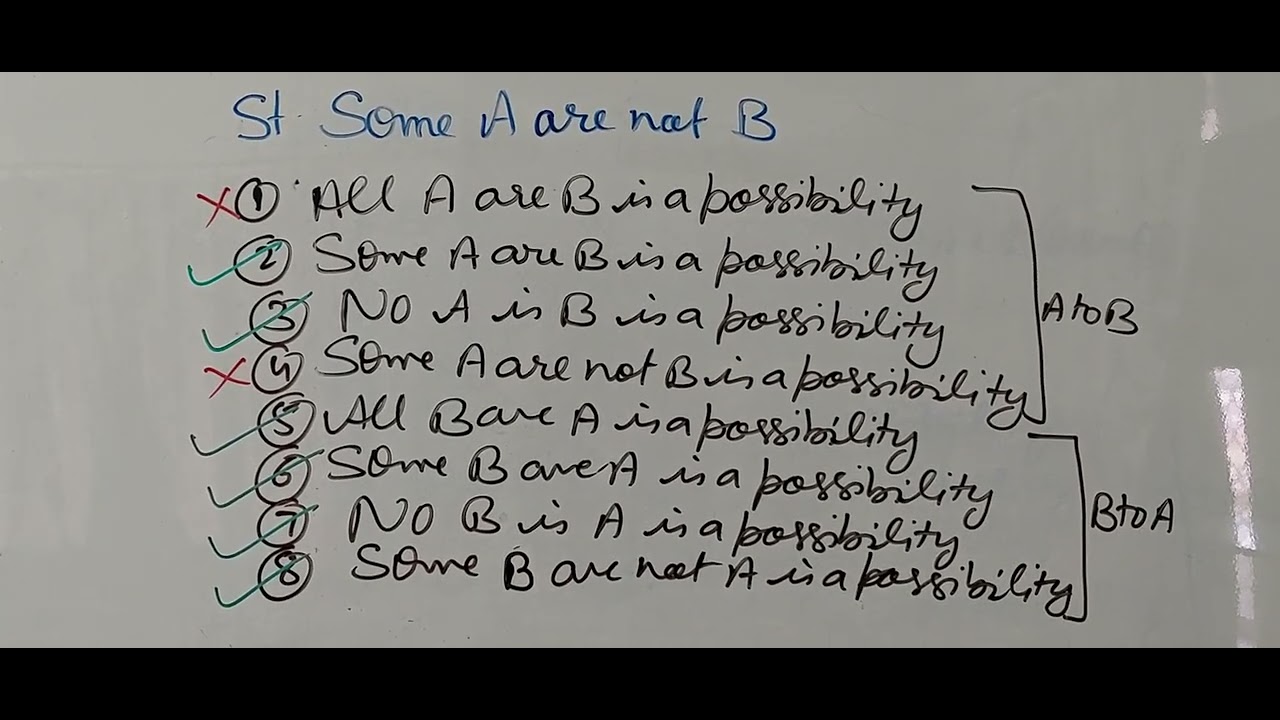 St. Some A are not B
① All A are B is a possibility
② Some A are B is a possibility
③ No A is B is a possibility
④ Some A are not B is a possibility
A to B
⑤ All B are A is a possibility
⑥ Some B are A is a possibility
⑦ No B is A is a possibility
⑧ Some B are not A is a possibility
B to A